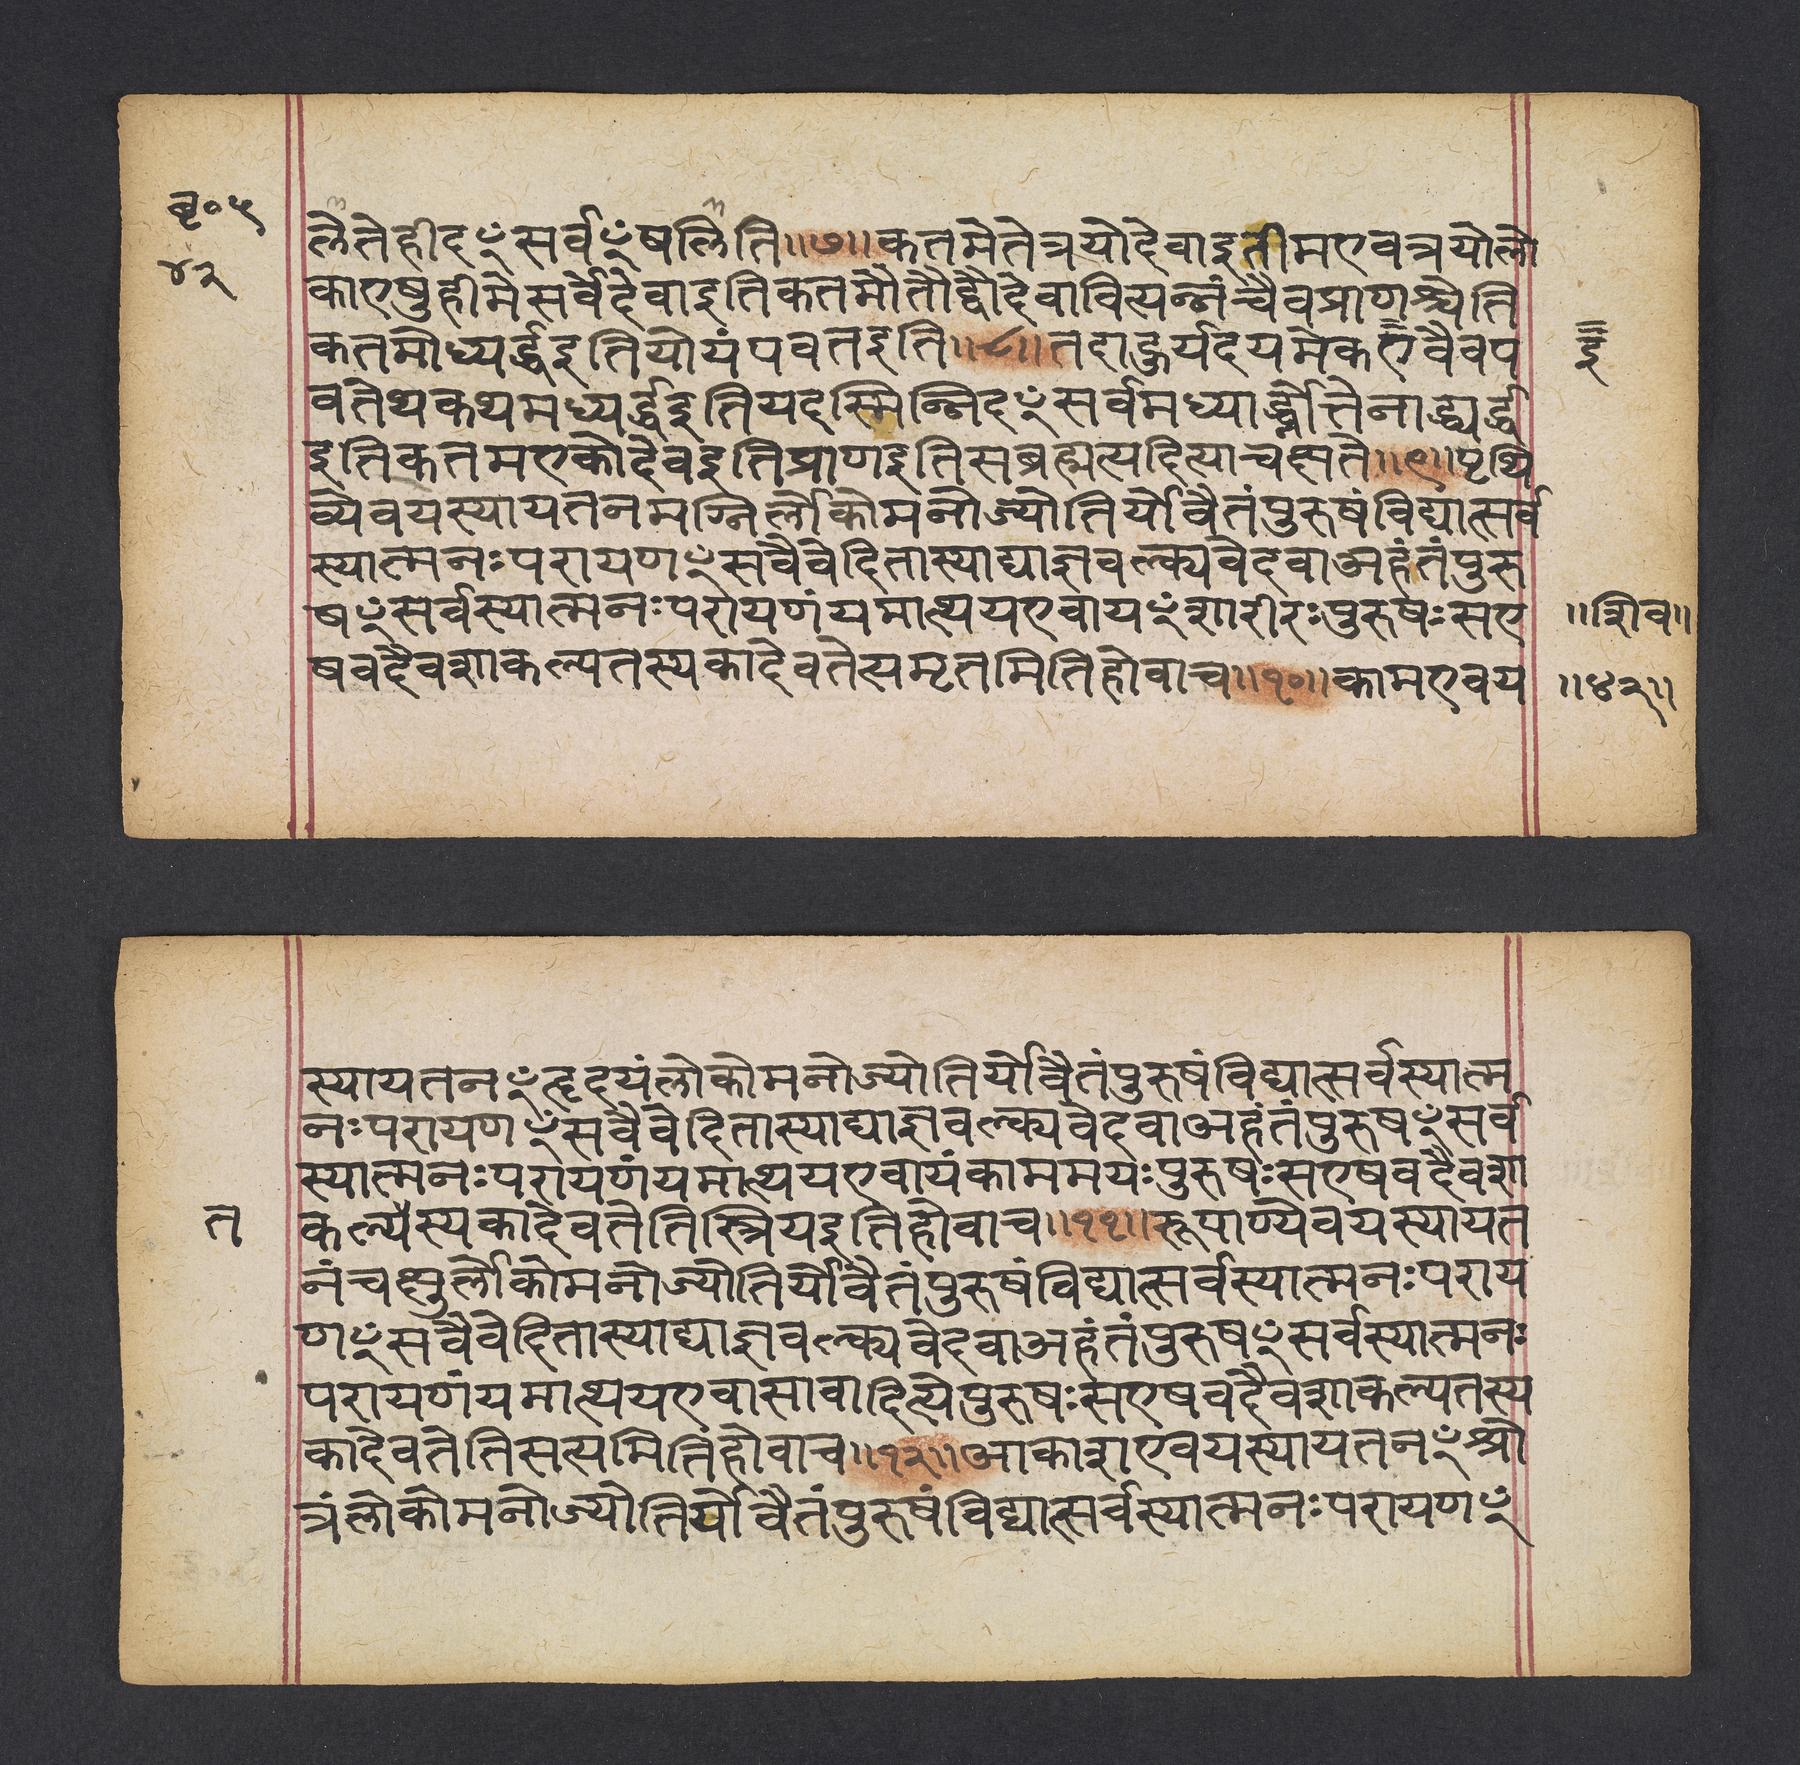 बृ॰५
४२
लैतेहीदꣳसर्वꣳषलिति॥७॥कतमेतेत्रयोदेवाइतीमएवत्रयोलो
काएषुहीमेसर्वेदेवाइतिकतमौतौद्वौदेवावित्यन्नंचैवप्राणश्चेति
कतमोध्यर्द्धइतियोयंपवतइति॥८॥तदाहुर्यदयमेकएवैवप
इ
वतेथकथमध्यर्द्धइतियदस्मिन्निदꣳसर्वमध्यार्द्ध्नोत्तेनाद्ध्यर्द्ध
इतिकतमएकोदेवइतिप्राणइतिसब्रह्मत्यदित्याचक्षते॥९॥पृथि
व्येवयस्यायतनमग्निर्लोकोमनोज्योतिर्योवैतंपुरुषंविद्यात्सर्व
स्यात्मनःपरायणꣳसवैवेदितास्याद्याज्ञवल्क्यवेदवाअहंतंपुरु
षꣳसर्वस्यात्मनःपरायणंयमात्थयएवायꣳशारीरःपुरुषःसए
॥शिव॥
षवदैवशाकल्यतस्यकादेवतेत्यमृतमितिहोवाच॥१०॥कामएवय
॥४२॥
स्यायतनꣳहृदयंलोकोमनोज्योतिर्योवैतंपुरुषंविद्यात्सर्वस्यात्म
नःपरायणꣳसवैवेदितास्याद्याज्ञवल्क्यवेदवाअहंतंपुरुषꣳसर्व
स्यात्मनःपरायणंयमात्थयएवायंकाममयःपुरुषःसएषवदैवशा
त
कल्यस्यकादेवतेतिस्त्रियइतिहोवाच॥११॥रूपाण्येवयस्यायत
नंचक्षुर्लोकोमनोज्योतिर्योवैतंपुरुषंविद्यात्सर्वस्यात्मनःपराय
णꣳसवैवेदितास्याद्याज्ञवल्क्यवेदवाअहंतंपुरुषꣳसर्वस्यात्मनः
परायणंयमात्थयएवासावादित्येपुरुषःसएषवदैवशाकल्यतस्य
कादेवतेतिसत्यमितिहोवाच॥१२॥आकाशएवयस्यायतनꣳश्रो
त्रंलोकोमनोज्योतिर्योवैतंपुरुषंविद्यात्सर्वस्यात्मनःपरायणꣳ